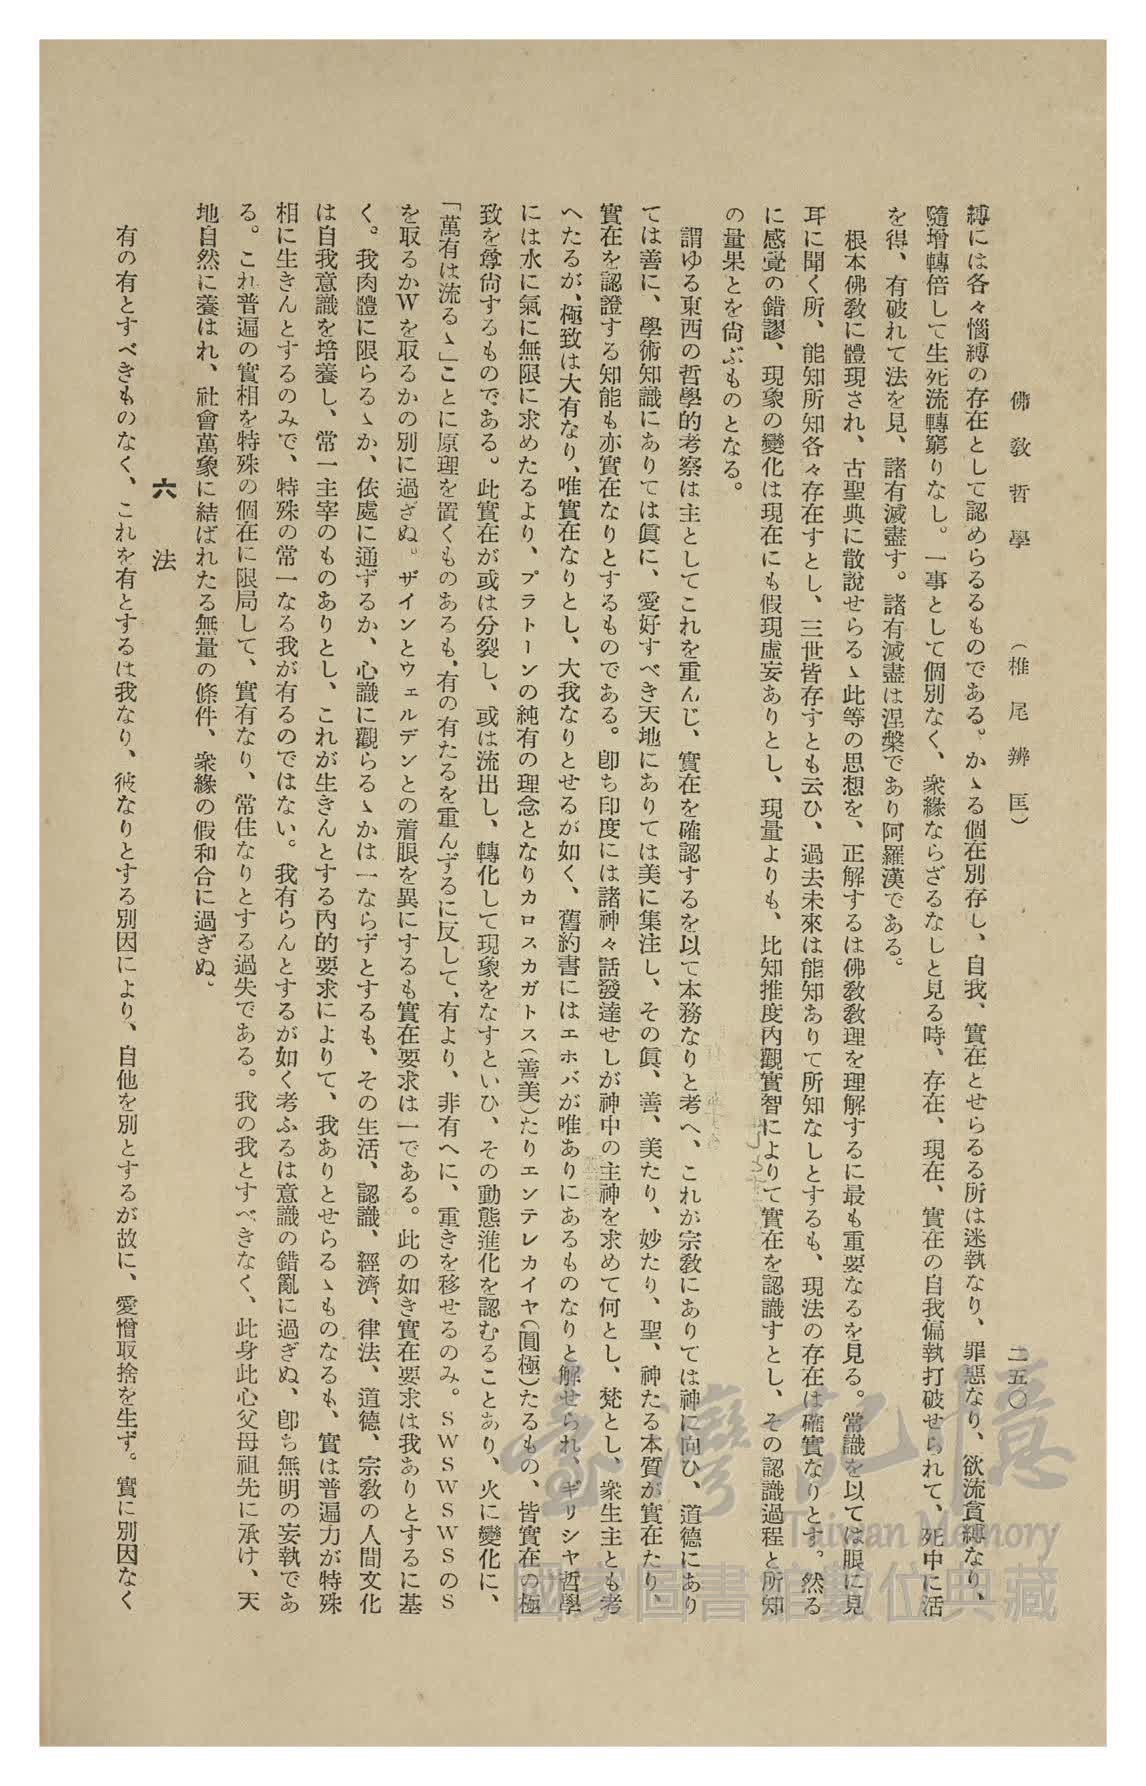 佛教哲學　（椎尾辨匡）　二五〇
縛には各々惱縛の存在として認めらるるものである。かゝる個在別存し、自我、實在とせらるる所は迷執なり、罪惡なり、欲流貪縛なり、
隨增轉倍して生死流轉窮りなし。一事として個別なく、衆緣ならざるなしと見る時、存在、現在、實在の自我偏執打破せられて、死中に活
を得、有破れて法を見、諸有滅盡す。諸有滅盡は涅槃であり阿羅漢である。
根本佛教に體現され、古聖典に散說せらるゝ此等の思想を、正解するは佛教教理を理解するに最も重要なるを見る。常識を以ては眼に見
耳に聞く所、能知所知各々存在すとし、三世皆存すとも云ひ、過去未來は能知ありて所知なしとするも、現法の存在は確實なりとす。然る
に感覺の錯謬、現象の變化は現在にも假現虛妄ありとし、現量よりも、比知推度內觀實智によりて實在を認識すとし、その認識過程と所知
の量果とを尙ぶものとなる。
謂ゆる東西の哲學的考察は主としてこれを重んじ、實在を確認するを以て本務なりと考へ、これが宗教にありては神に向ひ、道德にあり
ては善に、學術知識にありては眞に、愛好すべき天地にありては美に集注し、その眞、善、美たり、妙たり、聖、神たる本質が實在たり、
實在を認證する知能も亦實在なりとするものである。卽ち印度には諸神々話發達せしが神中の主神を求めて何とし、梵とし、衆生主とも考
へたるが、極致は大有なり、唯實在なりとし、大我なりとせるが如く、舊約書にはエホバが唯ありにあるものなりと解せられ、ギリシヤ哲學
には水に氣に無限に求めたるより、プラトーンの純有の理念となりカロスカガトス（善美）たりエンテレカイヤ（圓極）たるもの、皆實在の極
致を尊尙するものである。此實在が或は分裂し、或は流出し、轉化して現象をなすといひ、その動態進化を認むることあり、火に變化に、
「萬有は流るゝ」ことに原理を置くものあるも、有の有たるを重んずるに反して、有より、非有へに、重きを移せるのみ。ＳＷＳＷＳＷＳのＳ
を取るかＷを取るかの別に過ぎぬ。ザインとウェルデンとの着眼を異にするも實在要求は一である。此の如き實在要求は我ありとするに基
く。我肉體に限らるゝか、依處に通ずるか、心識に觀らるゝかは一ならずとするも、その生活、認識、經濟、律法、道德、宗教の人間文化
は自我意識を培養し、常一主宰のものありとし、これが生きんとする內的要求によりて、我ありとせらるゝものなるも、實は普遍力が特殊
相に生きんとするのみで、特殊の常一なる我が有るのではない。我有らんとするが如く考ふるは意識の錯亂に過ぎぬ、卽ち無明の妄執であ
る。これ普遍の實相を特殊の個在に限局して、實有なり、常住なりとする過失である。我の我とすべきなく、此身此心父母祖先に承け、天
地自然に養はれ、社會萬象に結ばれたる無量の條件、衆緣の假和合に過ぎぬ。
六　法
有の有とすべきものなく、これを有とするは我なり、彼なりとする別因により、自他を別とするが故に、愛憎取捨を生ず。實に別因なく
臺灣記憶
Taiwan Memory
國家圖書館數位典藏